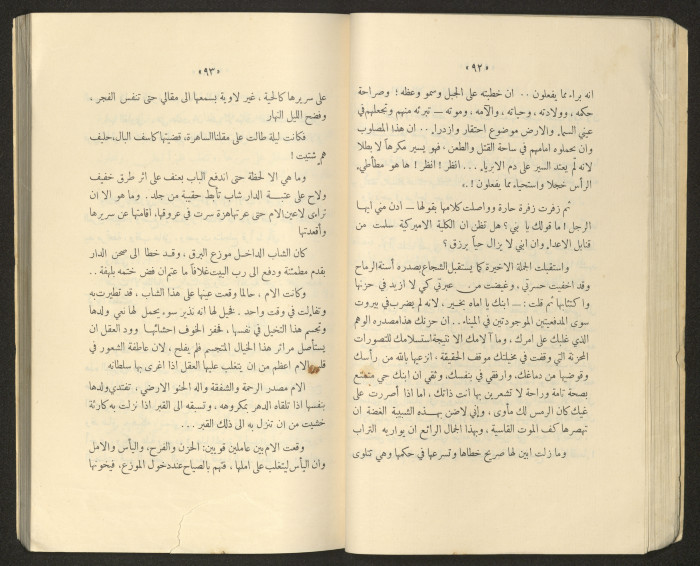 «٩٢»
انه براء مما يفعلون . . ان خطبته على الجبل وسمو وعظه ؛ وصراحة
حكمه ، وولادته ، وحياته ، وآلامه ، وموته — تبرئه منهم وتجعلهم في
عيني السماء والارض موضوع احتقار وازدراء . . ان هذا المصلوب
وان يحملوه امامهم في ساحة القتل والطعن . فهو يسير مكرهاً لا بطلا
لانه لم يعتد السير على دم الابرياء . . . انظر ! انظر ! ها هو مطأطئ
الرأس خجلا واستحياء مما يفعلون ! .
ثم زفرت زفرة حارة وواصلت كلامها بقولها — اذن مني ايها
الرجل ! ما قولك يا بني ؟ هل تظن ان الكلية الاميركية سلمت من
قنابل الاعداء وان ابني لا يزال حياً يرزق ؟
واستقبلت الجملة الاخيرة كما يستقبل الشجاع بصدره أسنة الرماح
وقد اخفيت حسرتي ، وغيضت من عبرتي كي لا ازيد في حزنها
واكتئابها ثم قلت : — ابنك يا اماه بخير ، لانه لم يضرب في بيروت
سوى المدفعيتين الموجودتين في الميناء . . ان حزنك هذا مصدره الوهم
الذي غلبك على امرك ، وما آلامك الا نتيجة استسلامك للتصورات
المحزنة التي وقفت في مخيلتك موقف الحقيقة . انزعها بالله من رأسك
وقوضيها من دماغك، وارفقي في بنفسك، وثقي ان ابنك حي متمتع
بصحة تامة وراحة لا تشعرين بها انت ذاتك ، اما اذا أصررت على
غيك كان الرمس لك مأوى ، وإني لاضن بهذه الشبيبة الغضة ان
تهصرها كف الموت القاسية ، وبهذا الجمال الرائع ان يواريه التراب
وما زلت ابين لها صريح خطاها وتسرعها في حكمها وهي تتلوى
«٩٣»
على سريرها كالحية ، غير لاوية بسمعها الى مقالي حتى تنفس الفجر ،
وفضح الليل النهار
فكانت ليلة طالت على مقلتنا الساهرة، قضيتها كاسف البال، حليف
هم شتيت !
وما هي الا لحظة حتى اندفع الباب بعنف على اثر طرق خفيف
ولاح على عتبة الدار شاب تأبط حقيبة من جلد . وما هو الا ان
تراءى لاعين الام حتى عرتها هزة سرت في عروقها، اقامتها عن سريرها
وأقعدتها
كان الشاب الداخل موزع البرق ، وقد خطا الى صحن الدار
بقدم مطمئنة ودفع الى رب البيت غلافاً ما عتم ان فض ختمه بلهفة . .
وكانت الام ، حالما وقعت عينها على هذا الشاب ، قد تطيرت به
وتفاءلت في وقت واحد . فخيل لها انه نذير سوء يحمل لها نعي ولدها
وتجسم هذا التخيل في نفسها ، فحفز الخوف احشائها وود العقل ان
يستأصل مرائر هذا الخيال المتجسم فلم يفلح ، لان عاطفة الشعور في
قلب الام اعظم من ان يتغلب عليها العقل اذا اغرى بها سلطانه
الام مصدر الرحمة والشفقة واله الحنو الارضي ، تفتدي ولدها
بنفسها اذا تلقاه الدهر بمكروهه ، وتسبقه الى القبر اذا نزلت به كارثة
خشيت من ان تنزل به الى ذلك القبر . . .
وقعت الام بين عاملين قويين : الحزن والفرح ، واليأس والامل
وان اليأس ليتغلب على املها ، فتهم بالصياح عند دخول الموزع، فيخونها